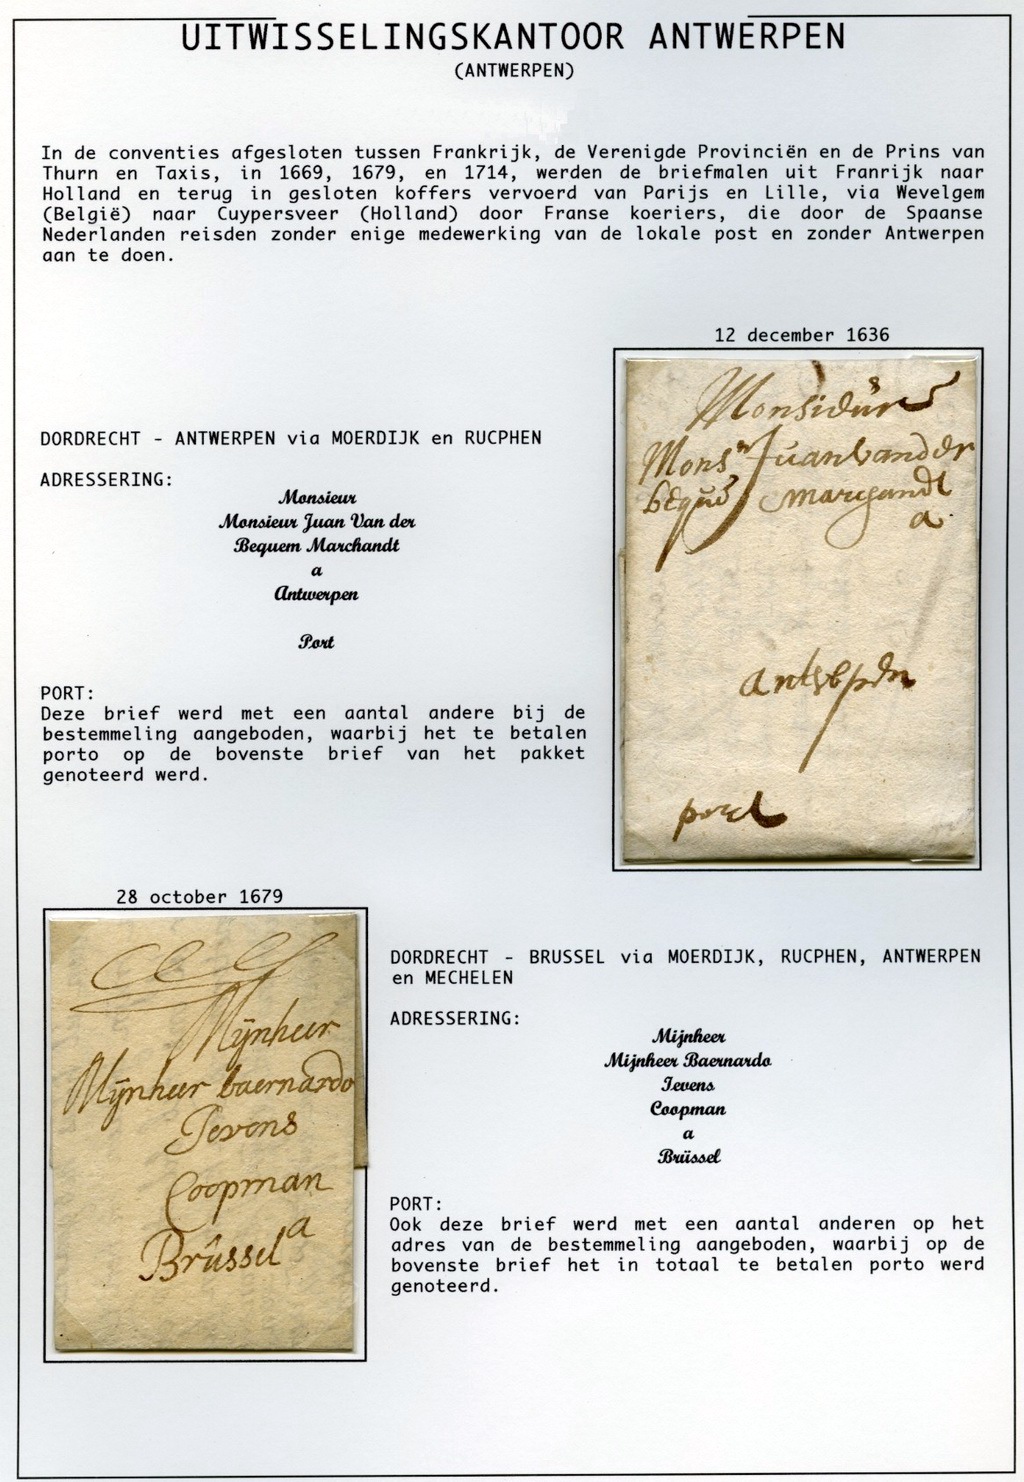 UITWISSELINGSKANTOOR ANTWERPEN
(ANTWERPEN)
In de conventies afgesloten tussen Frankrijk, de Verenigde Provinciën en de Prins van
Thurn en Taxis, in 1669, 1679, en 1714, werden de briefmalen uit Franrijk naar
Holland en terug in gesloten koffers vervoerd van Parijs en Lille, via Wevelgem
(België) naar Cuypersveer (Holland) door Franse koeriers, die door de Spaanse
Nederlanden reisden zonder enige medewerking van de lokale post en zonder Antwerpen
aan te doen.
12 december 1636
DORDRECHT - ANTWERPEN via MOERDIJK en RUCPHEN
ADRESSERING:
Monsieur
Monsieur Juan Van der
Bequem Marchandt
a
Antwerpen
Port
PORT:
Deze brief werd met een aantal andere bij de
bestemmeling aangeboden, waarbij het te betalen
porto op de bovenste brief van het pakket
genoteerd werd.
Monsieur
Monsr Juan vander
beque marchandt
a
antwerpen
port
28 october 1679
Mijnheer
Mijnheer baernardo
Jevens
Coopman
a
Brûssel
DORDRECHT - BRUSSEL via MOERDIJK, RUCPHEN, ANTWERPEN
en MECHELEN
ADRESSERING:
Mijnheer
Mijnheer Baernardo
Jevens
Coopman
a
Brüssel
PORT:
Ook deze brief werd met een aantal anderen op het
adres van de bestemmeling aangeboden, waarbij op de
bovenste brief het in totaal te betalen porto werd
genoteerd.